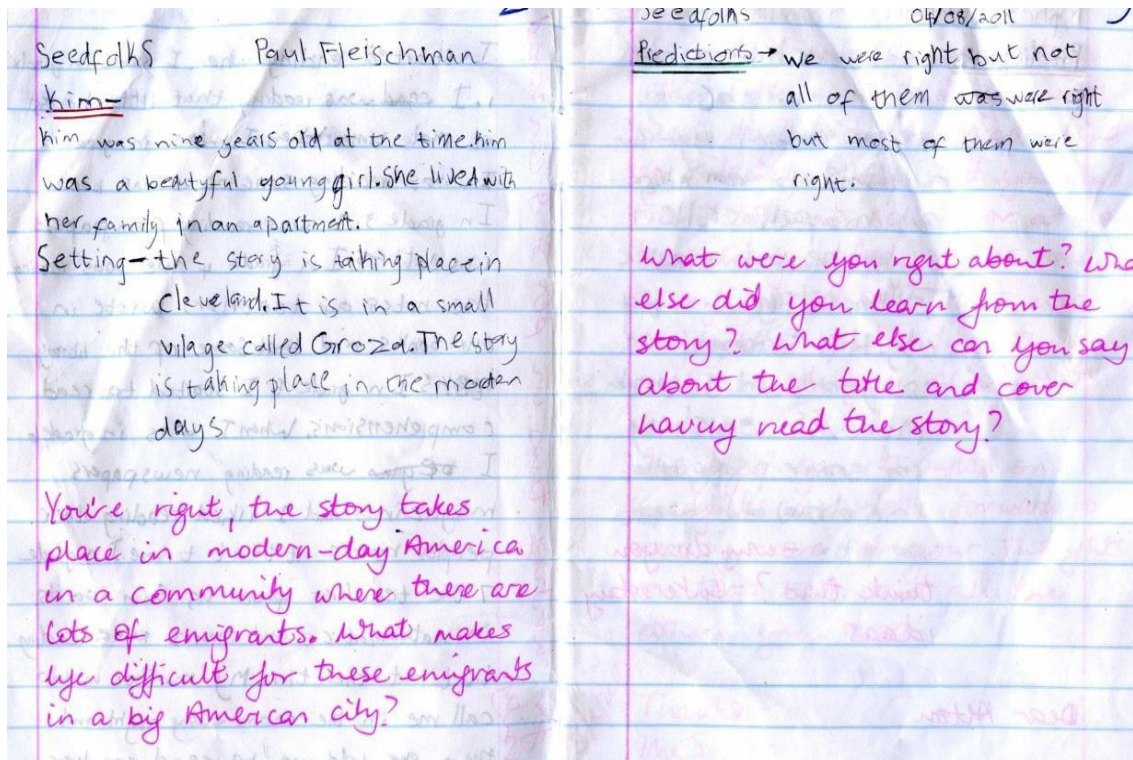 Seedfolks Paul Fleischman
Kim-
Kim was nine years old at the time. Kim
was a beautyful young girl. She lived with
her family in an apartment.
Setting- the story is taking place in
Cleveland. It is in a small
vilage called Groza. The story
is taking place in the morden
days
You're right, the story takes
place in modern-day America
in a community where there are
lots of emigrants. What makes
life difficult for these emigrants
in a big American city?
Seedfolks 04/08/2011
Predictions → we were right but not
all of them was were right
but most of them were
right.
What were you right about? Wha
else did you learn from the
story? What else can you say
about the title and cover
having read the story?